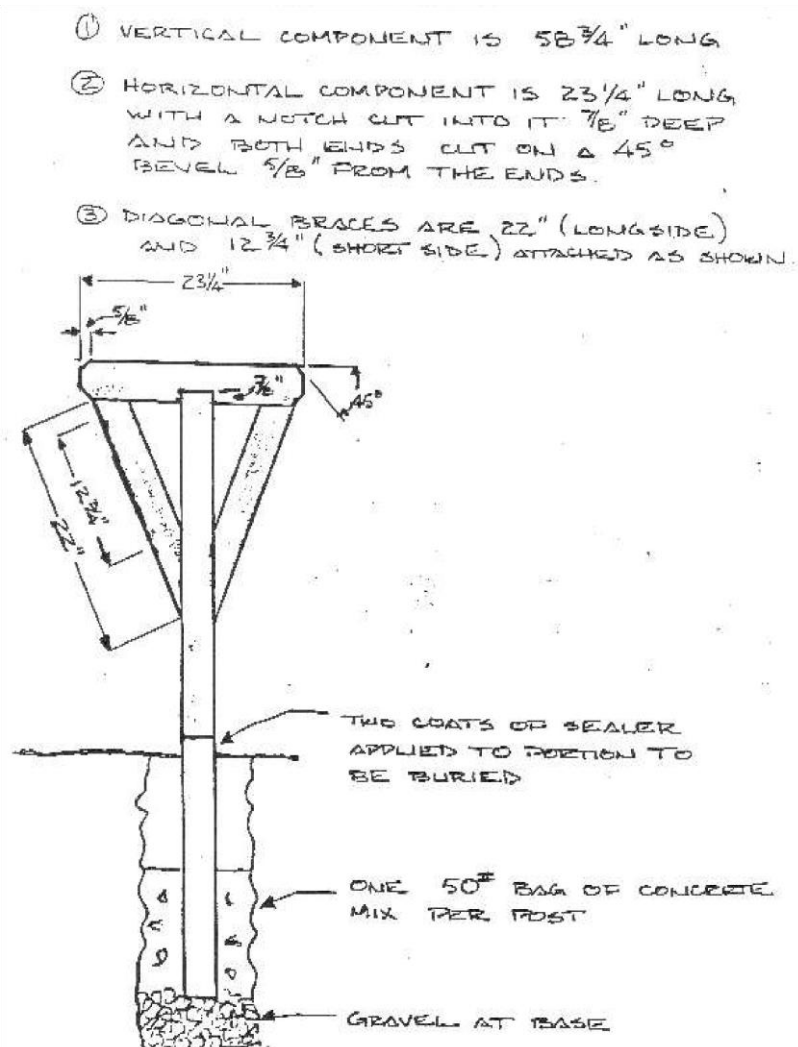 ① VERTICAL COMPONENT IS 58 3/4" LONG
② HORIZONTAL COMPONENT IS 23 1/4" LONG
WITH A NOTCH CUT INTO IT 7/8" DEEP
AND BOTH ENDS CUT ON A 45°
BEVEL 5/8" FROM THE ENDS.
③ DIAGONAL BRACES ARE 22" (LONGSIDE)
AND 12 3/4" (SHORT SIDE) ATTACHED AS SHOWN.
23 1/4"
5/8"
7/8"
45°
12 3/4"
22"
TWO COATS OF SEALER
APPLIED TO PORTION TO
BE BURIED
ONE 50# BAG OF CONCRETE
MIX PER POST
GRAVEL AT BASE